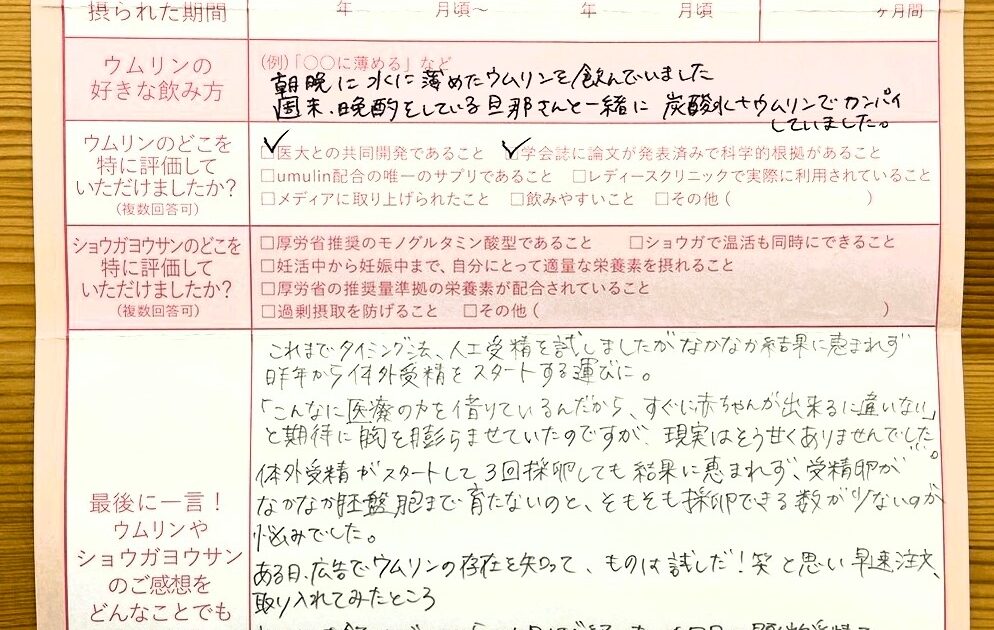 摂られた期間
年 月頃～ 年 月頃
ヶ月間
ウムリンの
好きな飲み方
(例)「○○に薄める」など
朝晩に水に薄めたウムリンを飲んでいました
週末、晩酌をしている旦那さんと一緒に 炭酸水+ウムリンでカンパイ
していました。
ウムリンのどこを
特に評価して
いただけましたか?
(複数回答可)
☑医大との共同開発であること ☑学会誌に論文が発表済みで科学的根拠があること
□umulin配合の唯一のサプリであること □レディースクリニックで実際に利用されていること
□メディアに取り上げられたこと □飲みやすいこと □その他( )
ショウガヨウサンのどこを
特に評価して
いただけましたか?
(複数回答可)
□厚労省推奨のモノグルタミン酸型であること □ショウガで温活も同時にできること
□妊活中から妊娠中まで、自分にとって適量な栄養素を摂れること
□厚労省の推奨量準拠の栄養素が配合されていること
□過剰摂取を防げること □その他( )
最後に一言!
ウムリンや
ショウガヨウサン
のご感想を
どんなことでも
これまでタイミング法、人工受精を試しましたがなかなか結果に恵まれず
昨年から体外受精をスタートする運びに。
「こんなに医療の力を借りているんだから、すぐに赤ちゃんが出来るに違いない」
と期待に胸を膨らませていたのですが、現実はそう甘くありませんでした…。
体外受精がスタートして3回採卵しても結果に恵まれず、受精卵が
なかなか胚盤胞まで育たないのと、そもそも採卵できる数が少ないのが
悩みでした。
ある日、広告でウムリンの存在を知って、ものは試しだ!笑 と思い早速注文、
取り入れてみたところ